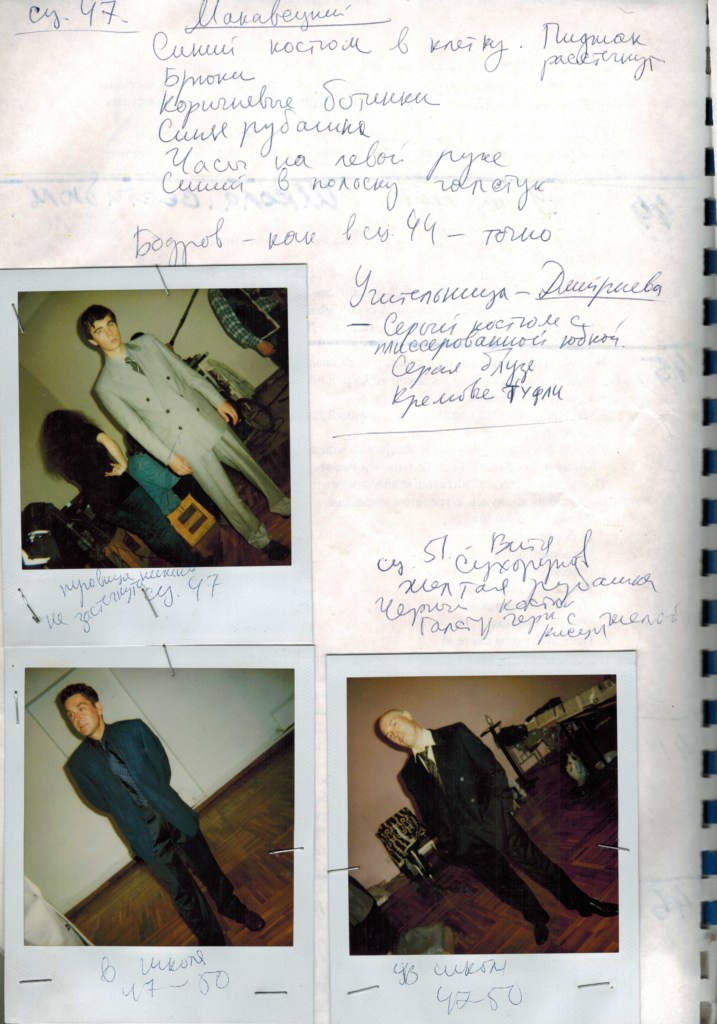 сц. 47. Маковецкий
Синий костюм в клетку. Пиджак
расстегнут
Брюки
Коричневые ботинки
Синяя рубашка
Часы на левой руке
Синий в полоску галстук
Бодров – как в сц. 44 – точно
Учительница – Дмитриева
– Серый костюм с
плиссированной юбкой.
Серая блуза
Кремовые туфли
сц. 51. Витя
Сухоруков
Желтая рубашка
Черный костюм
Галст
пуговица нижняя
не застегнута сц. 47
В школе
47–50
В школе
47–50